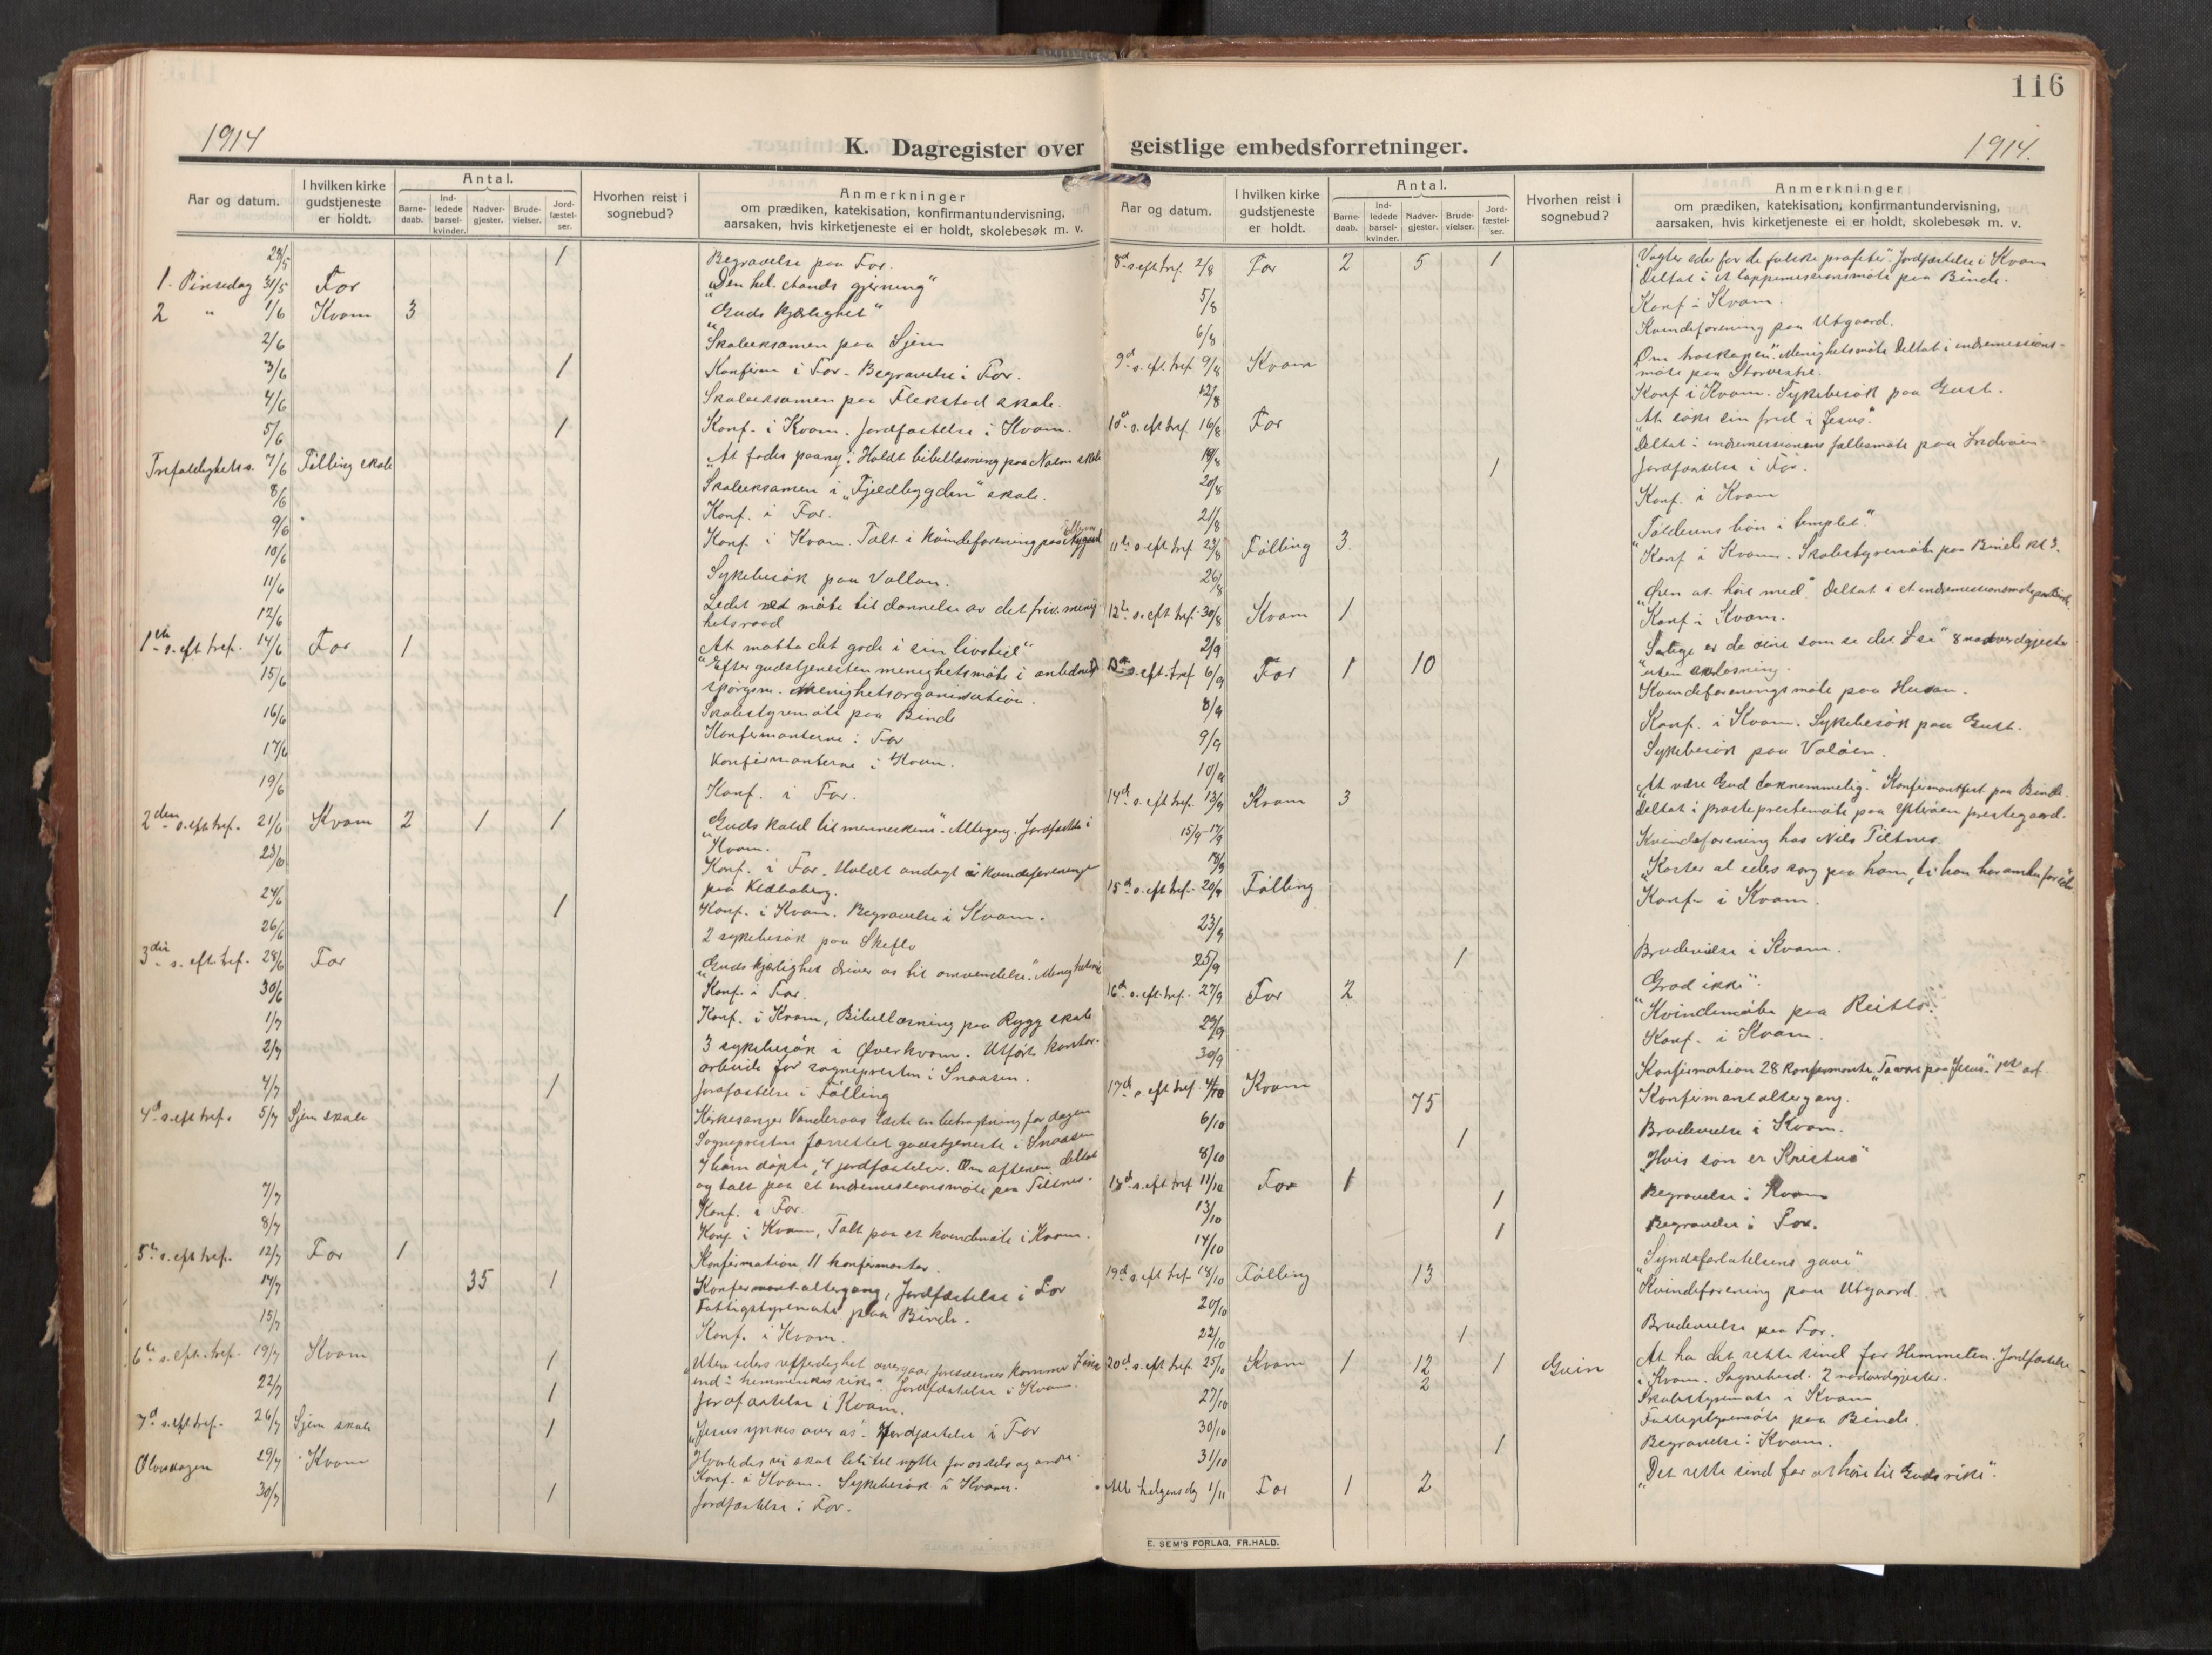 116
1914
K. Dagregister over geistlige embedsforretninger.
1914.
Aar og datum.
I hvilken kirke gudstjeneste er holdt.
Antal.
Barnedaab.
Indledede barselkvinder.
Nadvergjester.
Brudevielser.
Jordfæstelser.
Hvorhen reist i sognebud?
Anmerkninger
om prædiken, katekisation, konfirmantundervisning,
aarsaken, hvis kirketjeneste ei er holdt, skolebesøk m. v.
28/5 1 Begravelse paa For.
1. Pinsedag 31/5 For "Den hel. Aands gjerning"
2 " 1/6 Kvam 3 "Guds kjærlighet"
2/6 Skoleeksamen paa Sjem
3/6 1 Konfirm i For. Begravelse i For.
4/6 Skoleeksamen paa Flekstad skole.
5/6 1 Konf. i Kvam. Jordfæstelse i Kvam.
Trefoldighets s. 7/6 Følling skole "At fødes paany". Holdt bibellæsning paa skole
8/6 Skoleeksamen i "Fjeldbygden" skole.
9/6 Konf. i For.
10/6 Konf i Kvam. Talt i kvindeforening paa
11/6 Sykebesøk paa Vollan.
12/6 Ledet ved møte til dannelse av det friv. menig
hetsraad
1ste s. eft. tref. 14/6 For 1 "At motta det gode i sin livstid"
15/6 Efter gudstjenesten menighetsmøte i anledn.
spørgsm. menighetsorganisation.
16/6 Skolestyremøte paa Binde
Konfirmanterne i For
17/6 Konfirmanterne i Kvam.
19/6 Konf. i For.
2den s. eft. tref. 21/6 Kvam 2 1 1 "Guds kald til menneskene". Altergang. Jordfæstelse i
Kvam.
23/6 Konf. i For. Holdt andagt i kvindeforeningen
paa Kleboberg.
24/6 1 Konf. i Kvam. Begravelse i Kvam.
26/6 2 sykebesøk paa Skeflo
3die s. eft. tref. 28/6 For "Guds kjærlighet driver os til omvendelse".
30/6 Konf. i For.
1/7 Konf. i Kvam, Bibellæsning paa Rygg skole
2/7 3 sykebesøk i Øverkvam. Utførte kontor-
arbeide for sognepresten i Snaasen.
4/7 1 Jordfæstelse i Følling
4d s. eft tref. 5/7 Sjem skole Kirkesanger Vanderaas læste en betragtning for dagen
Sognepresten forrettet gudstjeneste i Snaasen
4 børn døpte, 4 jordfæstelser. Om aftenen deltat
og talt paa et indremissionsmøte paa Tiltnes.
7/7 Konf. i For.
8/7 Konf i Kvam, Talt paa et kvindemøte i Kvam.
5te s. eft tref. 12/7 For 1 Konfirmation 11 konfirmanter.
14/7 35 1 Konfirmantaltergang, Jordfæstelse i For
Fattigstyremøte paa Binde.
15/7 Konf. i Kvam.
6te s. eft. tref. 19/7 Kvam 1 "Uten eders retferdighet overgaar farisæernes kommer I ikke
ind i himmerikes rike". Jordfæstelse i Kvam.
22/7 1 Jordfæstelse i Kvam.
7d s. eft tref. 26/7 Sjem skole 1 "Jesus ynkes over os". Jordfæstelse i For
Olsokdagen 29/7 Kvam Hvorledes vi skal bli til nytte for os selv og andre.
Konf. i Kvam. Sykebesøk i Kvam.
30/7 1 Jordfæstelse i For.
Aar og datum.
I hvilken kirke gudstjeneste er holdt.
Antal.
Barnedaab.
Indledede barselkvinder.
Nadvergjester.
Brudevielser.
Jordfæstelser.
Hvorhen reist i sognebud?
Anmerkninger
om prædiken, katekisation, konfirmantundervisning,
aarsaken, hvis kirketjeneste ei er holdt, skolebesøk m. v.
8d s. eft tref. 2/8 For 2 5 1 "Vogter eder for de falske profeter". Jordfæstelse i Kvam
Deltat i et lappemissionsmøte paa Binde.
5/8 Konf i Kvam.
6/8 Kvindeforening paa Utgaard.
9d s. eft. tref. 9/8 Kvam "Om troskapen". Menighetsmøte Deltat i indremissions-
møte paa Storvestre.
12/8 Konf i Kvam. Sykebesøk paa Gust.
10d s. eft tref. 16/8 For "At søke sin fred i Jesus".
Deltat i indremissionens fællesmøte paa Inderøen
19/8 1 Jordfæstelse i For.
20/8 Konf. i Kvam
21/8
11te s. eft tref. 23/8 Følling 3. "Tolderens bøn i templet".
26/8 Konf i Kvam. Skolestyremøte paa Binde kl 3.
12te s. eft tref. 30/8 Kvam 1 "Øren at høre med". Deltat i et indremissionsmøte paa Binde
2/9 Konf i Kvam.
13de s. eft. tref 6/9 For 1 10 "Salige er de øine som se det I se" 8 nadverdgjester
uten avløsning.
8/9 Kvindeforeningsmøte paa Husan.
9/9 Konf. i Kvam. Sykebesøk paa Gust.
10/9 Sykebesøk paa Valøen.
14d s. eft tref. 13/9 Kvam 3 "At være Gud taknemmelig". Konfirmantfest paa Binde.
15/9-17/9 Deltat i prosteprestemøte paa Ytterøen prestegaard.
18/9 Kvindeforening hos Nils Tiltnes.
15d s. eft tref. 20/9 Følling "Kaster al eders sorg paa ham, ti han har omhu for eder"
23/9 Konf i Kvam.
25/9 1 Brudevielse i Kvam.
16d s. eft. tref. 27/9 For 2 "Graat ikke".
29/9 Kvindemøte paa Reitlo.
30/9 Konf. i Kvam.
17d s eft tref. 4/10 Kvam Konfirmation 28 konfirmanter
6/10 75 Konfirmantaltergang.
8/10 1 Brudevielse i Kvam.
18d s. eft tref 11/10 For 1 "Hvis søn er Kristus"
13/10 1 Begravelse i Kvam
14/10 1 Begravelse i For.
19d s. eft tref 18/10 Følling 13 "Syndsforlatelsens gave"
20/10 Kvindeforening paa Utgaard.
22/10 1 Brudevielse paa For.
20d s. eft tref 25/10 Kvam 1 12 1 At ha det rette sind for Himmelen. Jordfæstelse
2 i Kvam. Sognebud. 2 nadverdgjester.
27/10 Skolestyremøte i Kvam
30/10 Fattigstyremøte paa Binde.
31/10 1 Begravelse i Kvam.
Alle helgens dg 1/11 For 1 2 "Det rette sind for at høre til Guds rike".
E. SEM'S FORLAG, FR.HALD.